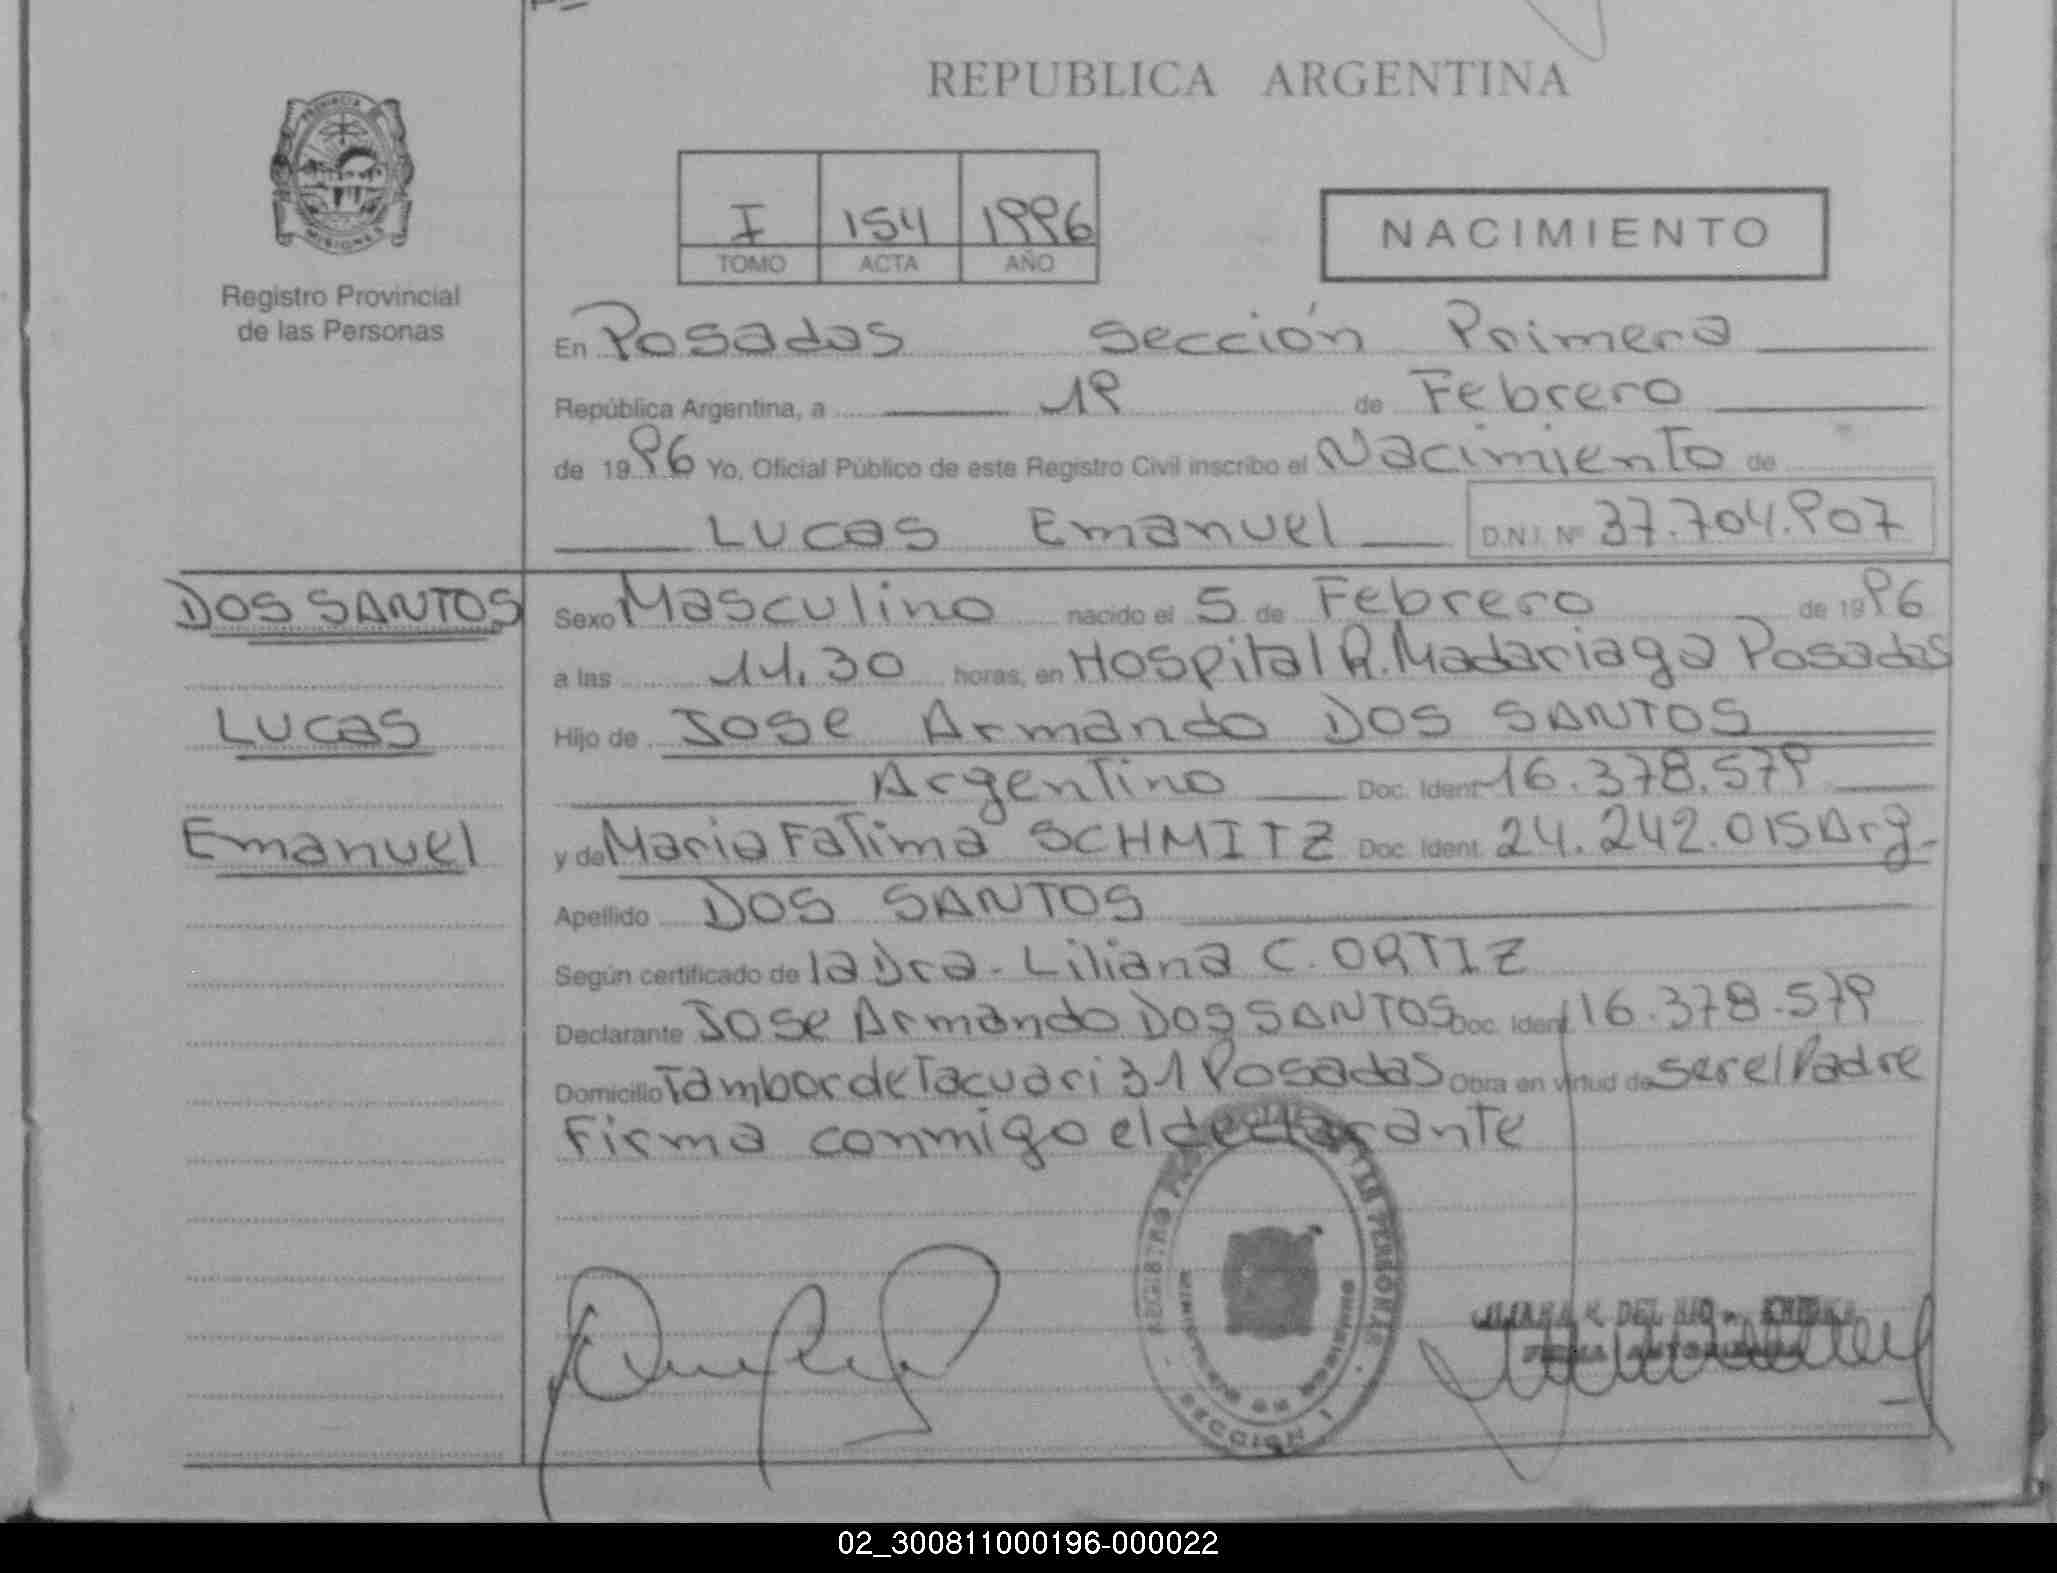 REPUBLICA ARGENTINA
PROVINCIA
MISIONES
Registro Provincial
de las Personas
I 154 1996
TOMO ACTA AÑO
NACIMIENTO
En Posadas Sección Primera
República Argentina, a 19 de Febrero
de 1996 Yo, Oficial Público de este Registro Civil inscribo el Nacimiento de
Lucas Emanuel D.N.I. Nº 37.704.907
DOS SANTOS
Lucas
Emanuel
Sexo Masculino nacido el 5 de Febrero de 1996
a las 11.30 horas, en Hospital R. Madariaga Posadas
Hijo de Jose Armando DOS SANTOS
Argentino Doc. Ident 16.378.579
y de Maria Fatima SCHMITZ Doc. Ident. 24.242.015 Arg.
Apellido DOS SANTOS
Según certificado de la Dra. Liliana C. ORTIZ
Declarante Jose Armando Dos SANTOS Doc. Ident 16.378.579
Domicilio Tambor de Tacuari 31 Posadas Obra en virtud de ser el Padre
Firma conmigo el declarante
REGISTRO DE LAS PERSONAS
MISIONES
SECCION I
DEL RIO
FIRMA AUTORIZADA
02_300811000196-000022